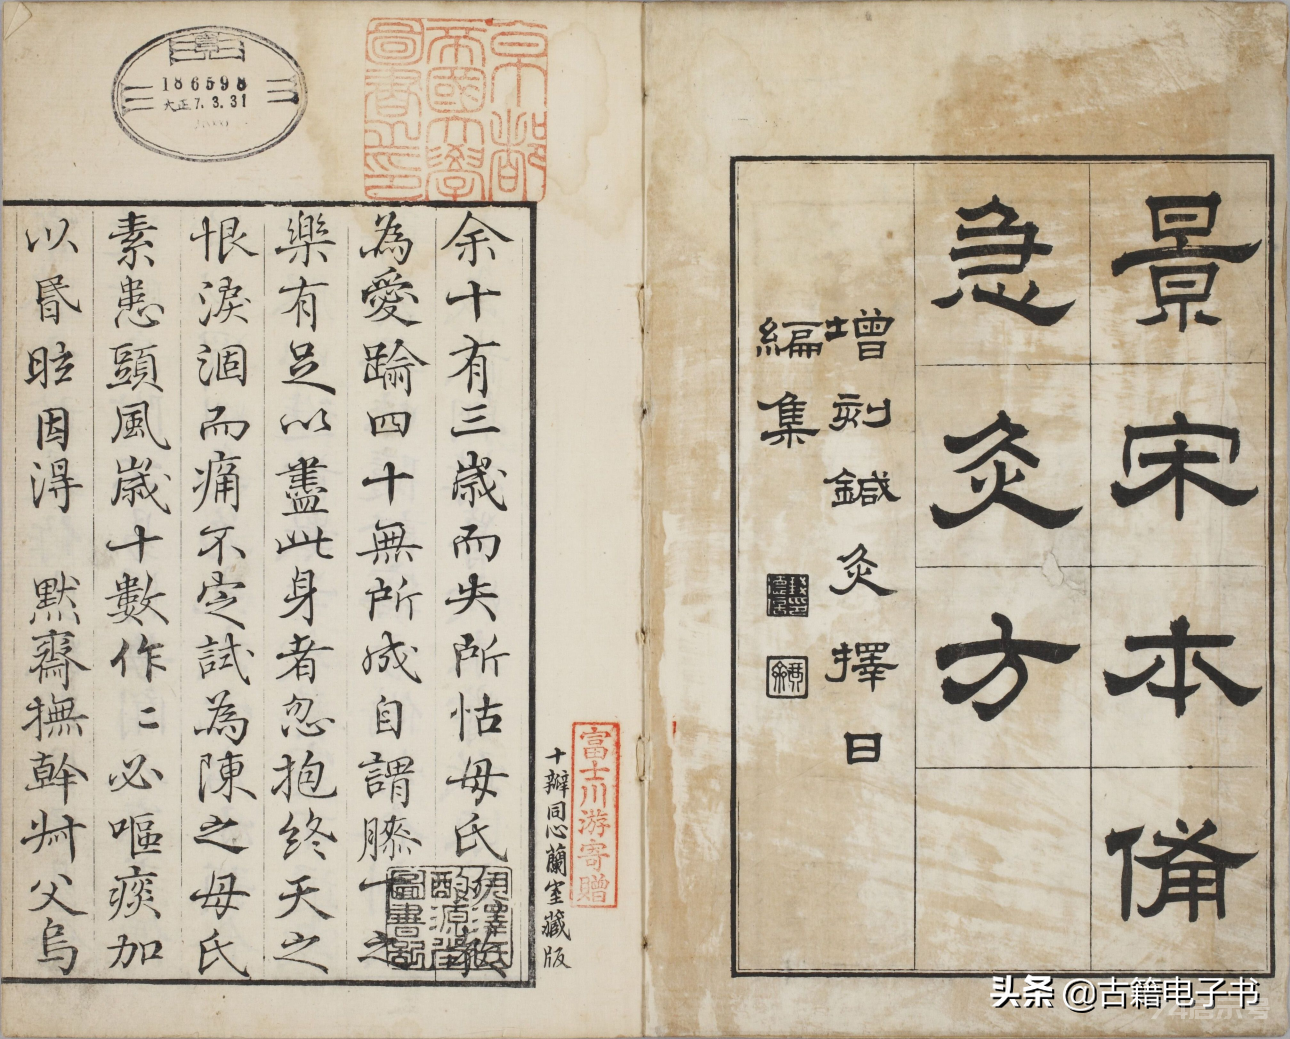 景宋本備
急灸方
增刻鍼灸擇日
編集
富士川游寄贈
十瓣同心蘭室藏版
京都
帝國大學
圖書之印
186598
大正7.3.31
余十有三歲而失所怙母氏
為愛踰四十無所成自謂膝下之
樂有足以盡此身者忽抱終天之
恨淚涸而痛不定試為陳之母氏
素患頭風歲十數作〻必嘔痰加
以昏眩因得 默齋撫幹艸父烏
伊澤氏
酌源堂
圖書記
头条 @古籍电子书